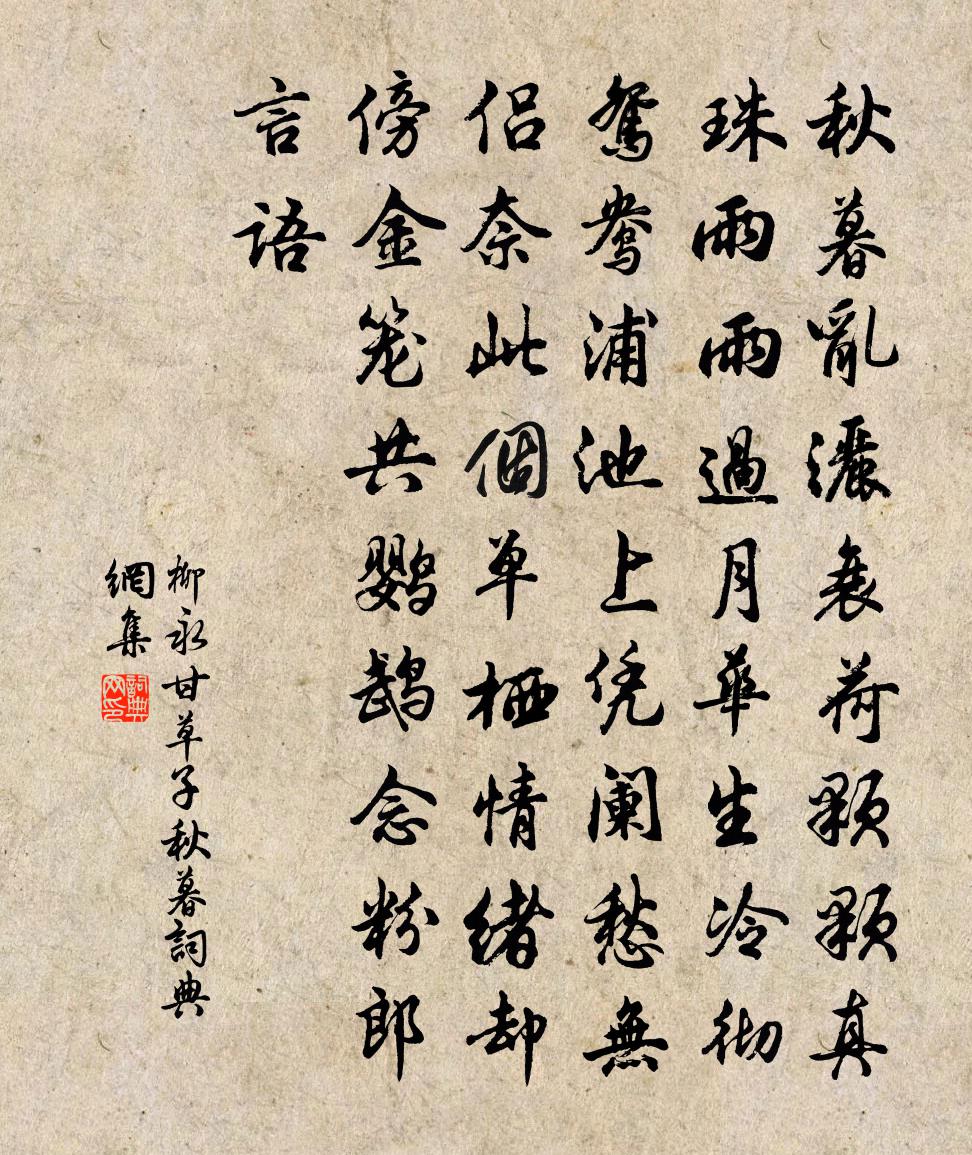 秋暮亂灑衰荷顆顆真
珠雨雨過月華生冷彻
鴛鴦浦池上凭阑愁無
侣奈此個單栖情緒却
傍金笼共鹦鹉念粉郎
言語
柳永甘草子秋暮詞典
網集
詞典
网印